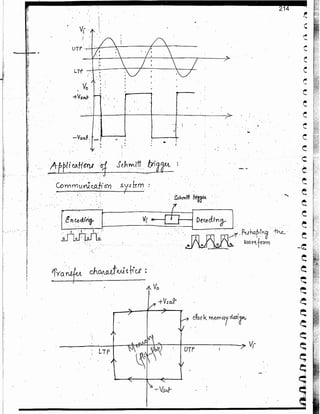 214
Vi
UTP
LTP
Vo
+Vsat
-Vsat
Applications of Schmitt trigger :
Communication system :
Schmitt trigger
Encoding
Vf
Decoding
Reshaping the
wave form
Transfer characteristics :
Vo
+Vsat
clock memory design
Memory
LTP
UTP
Vi
-Vsat